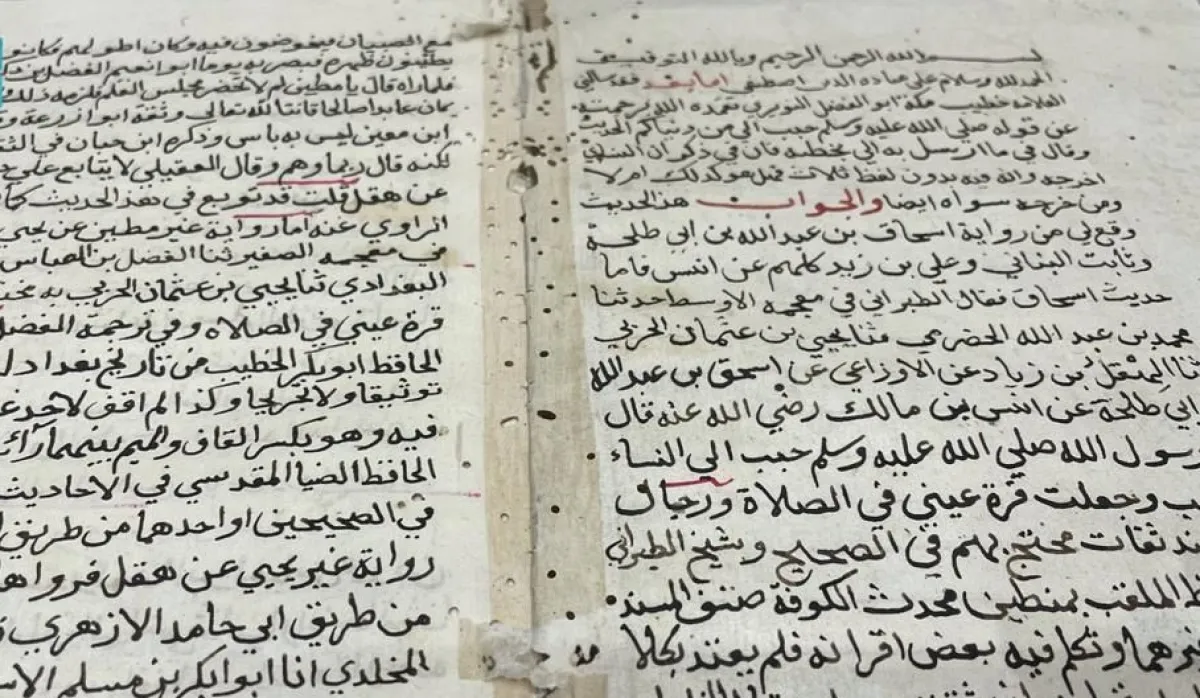 بسم الله الرحمن الرحيم وبالله التوفيق
الحمد لله وسلام على عباده الذين اصطفى اما بعد فقد سالني
العلامة خطيب مكة ابو الفضل النويري تغمده الله برحمته
عن قوله صلي الله عليه وسلم حبب الي من دنياكم الحديث
وقال في ما ارسل به الي بخطه فان في ذكر ان النسائي
اخرجه وانه فيه بدون لفظ ثلاث فهل هو كذلك ام لا
ومن خرجه سواه ايضا والجواب هذا الحديث
وقع لي من رواية اسحاق بن عبد الله بن ابي طلحة
وثابت البناني وعلي بن زيد كلهم عن انس فاما
حديث اسحاق فقال الطبراني في معجمه الاوسط حدثنا
محمد بن عبد الله الحضرمي ثنا يحيي بن عثمان الحربي
ثنا الهقل بن زياد عن الاوزاعي عن اسحق بن عبد الله
ابي طلحة عن انس بن مالك رضي الله عنه قال
رسول الله صلي الله عليه وسلم حبب الي النساء
وجعلت قرة عيني في الصلاة ورجال
ثقات محتج بهم في الصحيح وشيخ الطبراني
الملقب بمطين محدث الكوفة صنف المسند
وتكلم فيه بعض اقرانه فلم يعتد بكلا
مع الصبيان فيخوضون فيه وكان اطولهم فكانوا
يطينون ظهره فبصر به يوما ابو نعيم الفضل بن
فلما راه قال يا مطين لم لا تحضر مجلس العلم فلزمه ذلك
ثمان عابدا صالحا قانتا لله تعالي وثقه ابو زرعة
ابن معين ليس به باس وذكره ابن حبان في
لكنه قال ربما وهم وقال العقيلي لا يتابع علي
عن هقل قلت قد توبع في هذا الحديث كما
الراوي عنه اما رواية غير مطين عن يحيي
في معجمه الصغير ثنا الفضل بن العباس
البغدادي ثنا يحيي بن عثمان الحربي به
قرة عيني في الصلاة وفي ترجمة الفضل
الحافظ ابو بكر الخطيب من تاريخ بغداد
توثيقا ولا تجريحا وكذا لم اقف لاحد
فيه وهو بكسر القاف والميم بينهما راء
الحافظ الضيا المقدسي في الاحاديث
في الصحيحين او احدهما من طريق
رواية غير يحيي عن هقل فرواها
من طريق ابي حامد الازهري
المخلدي انا ابو بكر بن مسلم